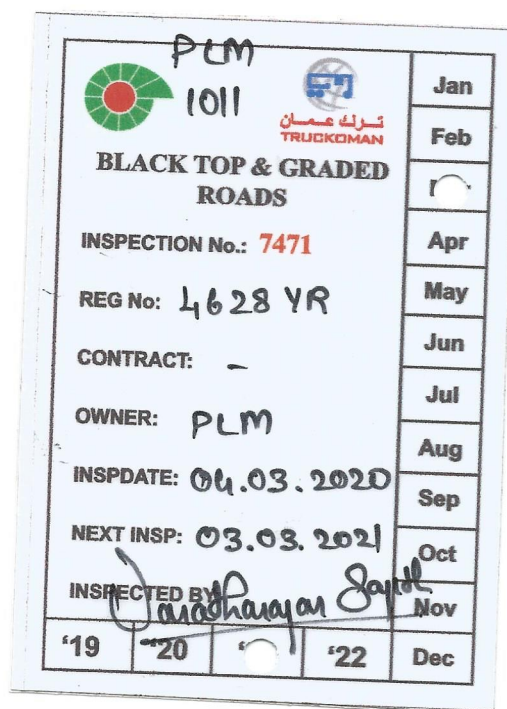 PLM
1011
ترك عمان
TRUCKOMAN
BLACK TOP & GRADED
ROADS
INSPECTION No.: 7471
REG No: 4628 YR
CONTRACT: -
OWNER: PLM
INSPDATE: 04.03.2020
NEXT INSP: 03.03.2021
INSPECTED BY
Jan
Feb
Apr
May
Jun
Jul
Aug
Sep
Oct
Nov
Dec
'19 '20 '22